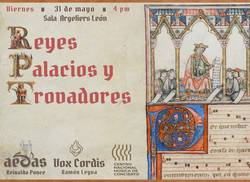 Viernes • 31 de mayo • 4 pm
Sala Argeliers León
Reyes
Palacios y
Trovadores
aedas
Reinaldo Ponce
Vox Cordis
Ramón Leyva
CENTRO
NACIONAL
MÚSICA DE
CONCIERTO